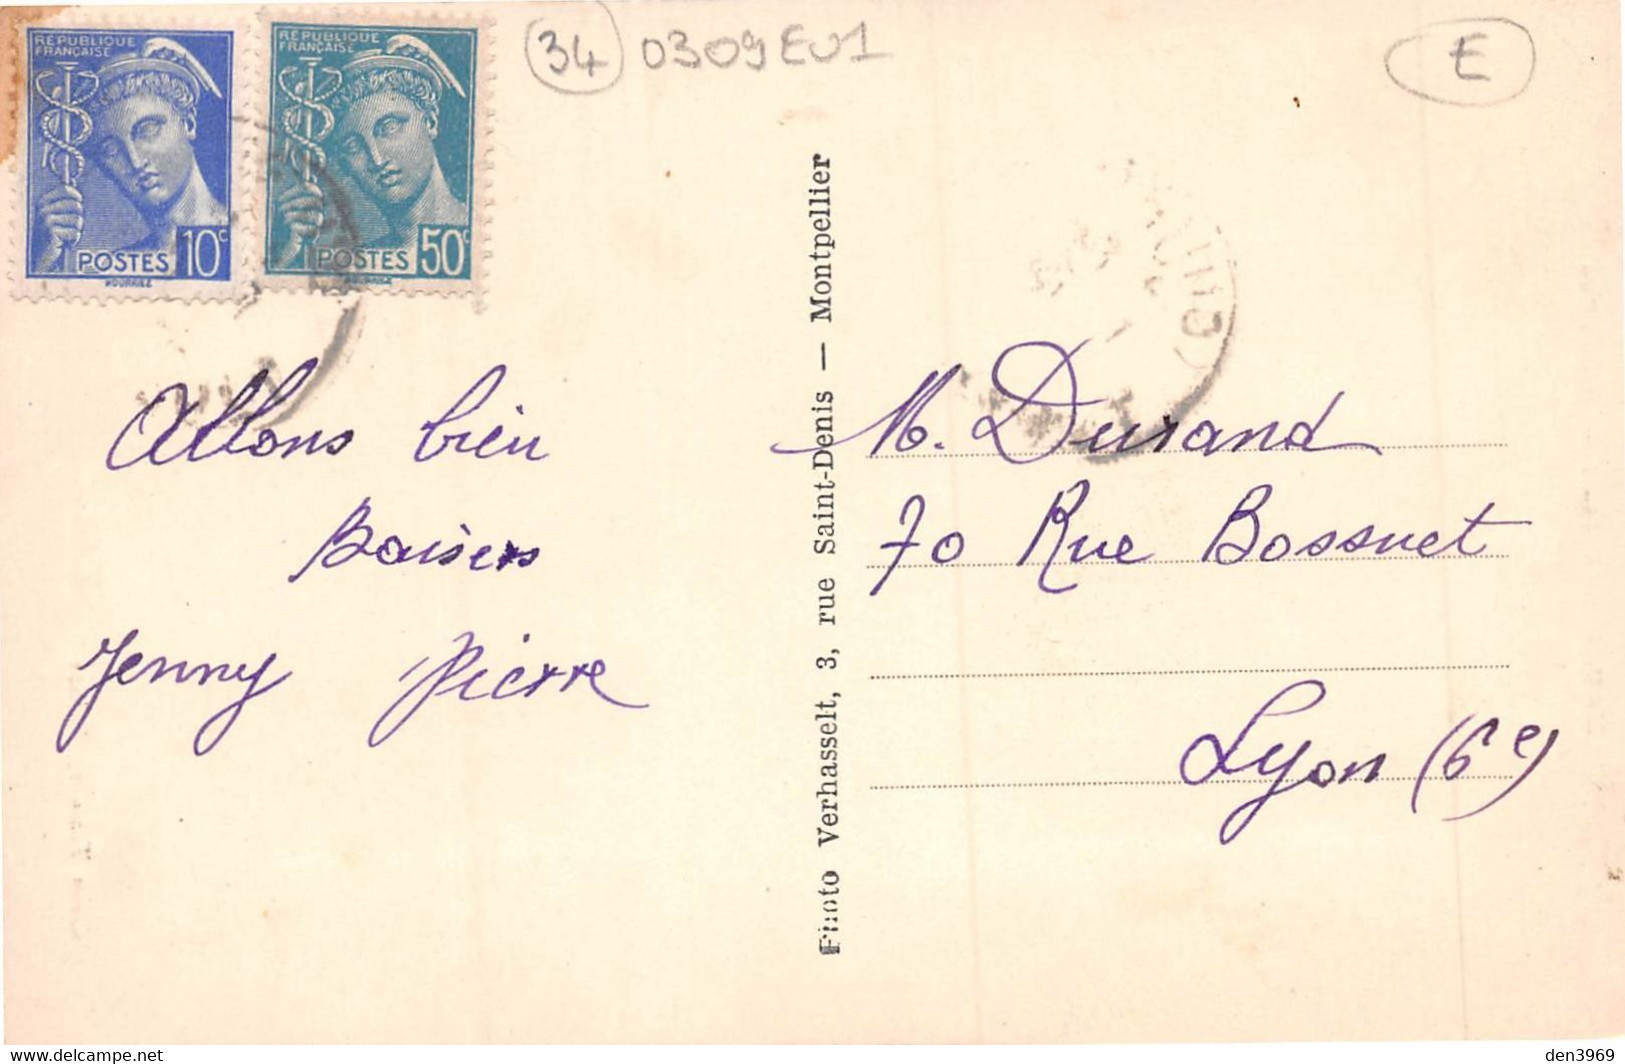 RÉPUBLIQUE
FRANÇAISE
POSTES 10c
RÉPUBLIQUE
FRANÇAISE
POSTES 50c
34 0309EU1
E
Allons bien
Baisers
Jenny Pierre
Photo Verhasselt, 3, rue Saint-Denis — Montpellier
M. Durand
70 Rue Bossuet
Lyon (6e)
delcampe.net
den3969